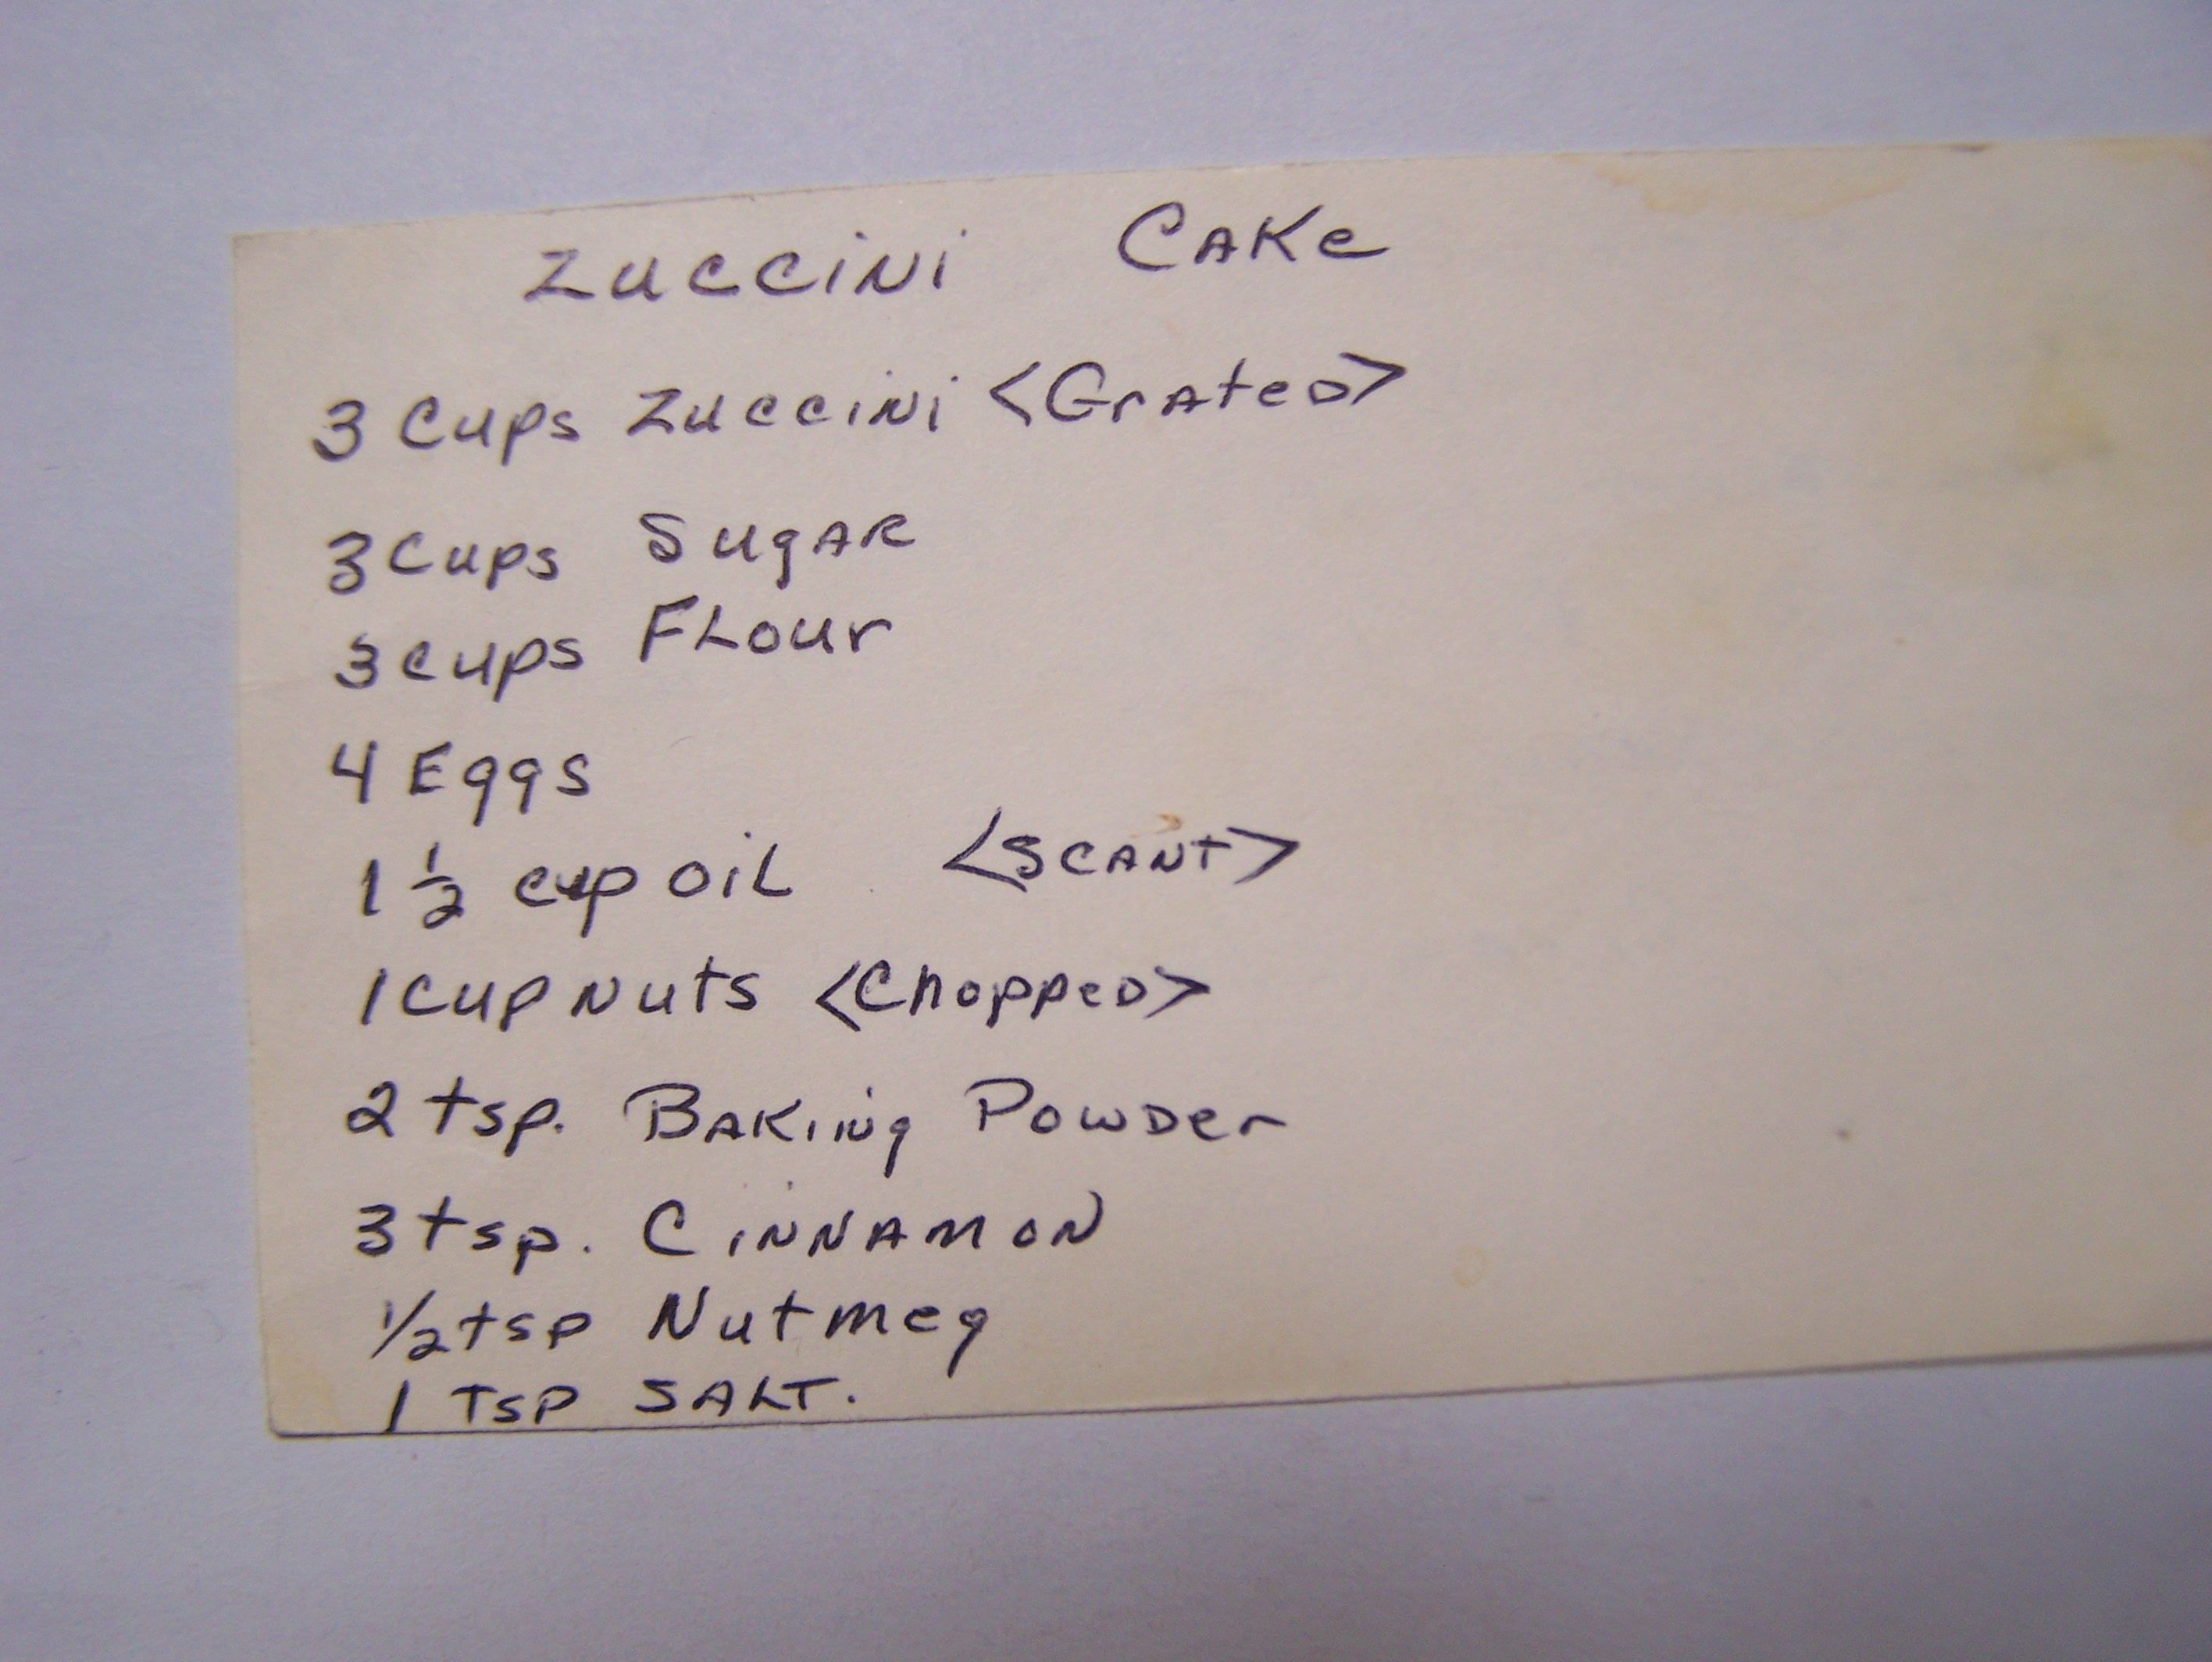 Zuccini Cake
3 Cups Zuccini <Grated>
3 Cups Sugar
3 cups Flour
4 Eggs
1 ½ cup oil <scant>
1 cup nuts <Chopped>
2 tsp. Baking Powder
3 tsp. Cinnamon
1/2 tsp Nutmeg
1 Tsp SALT.